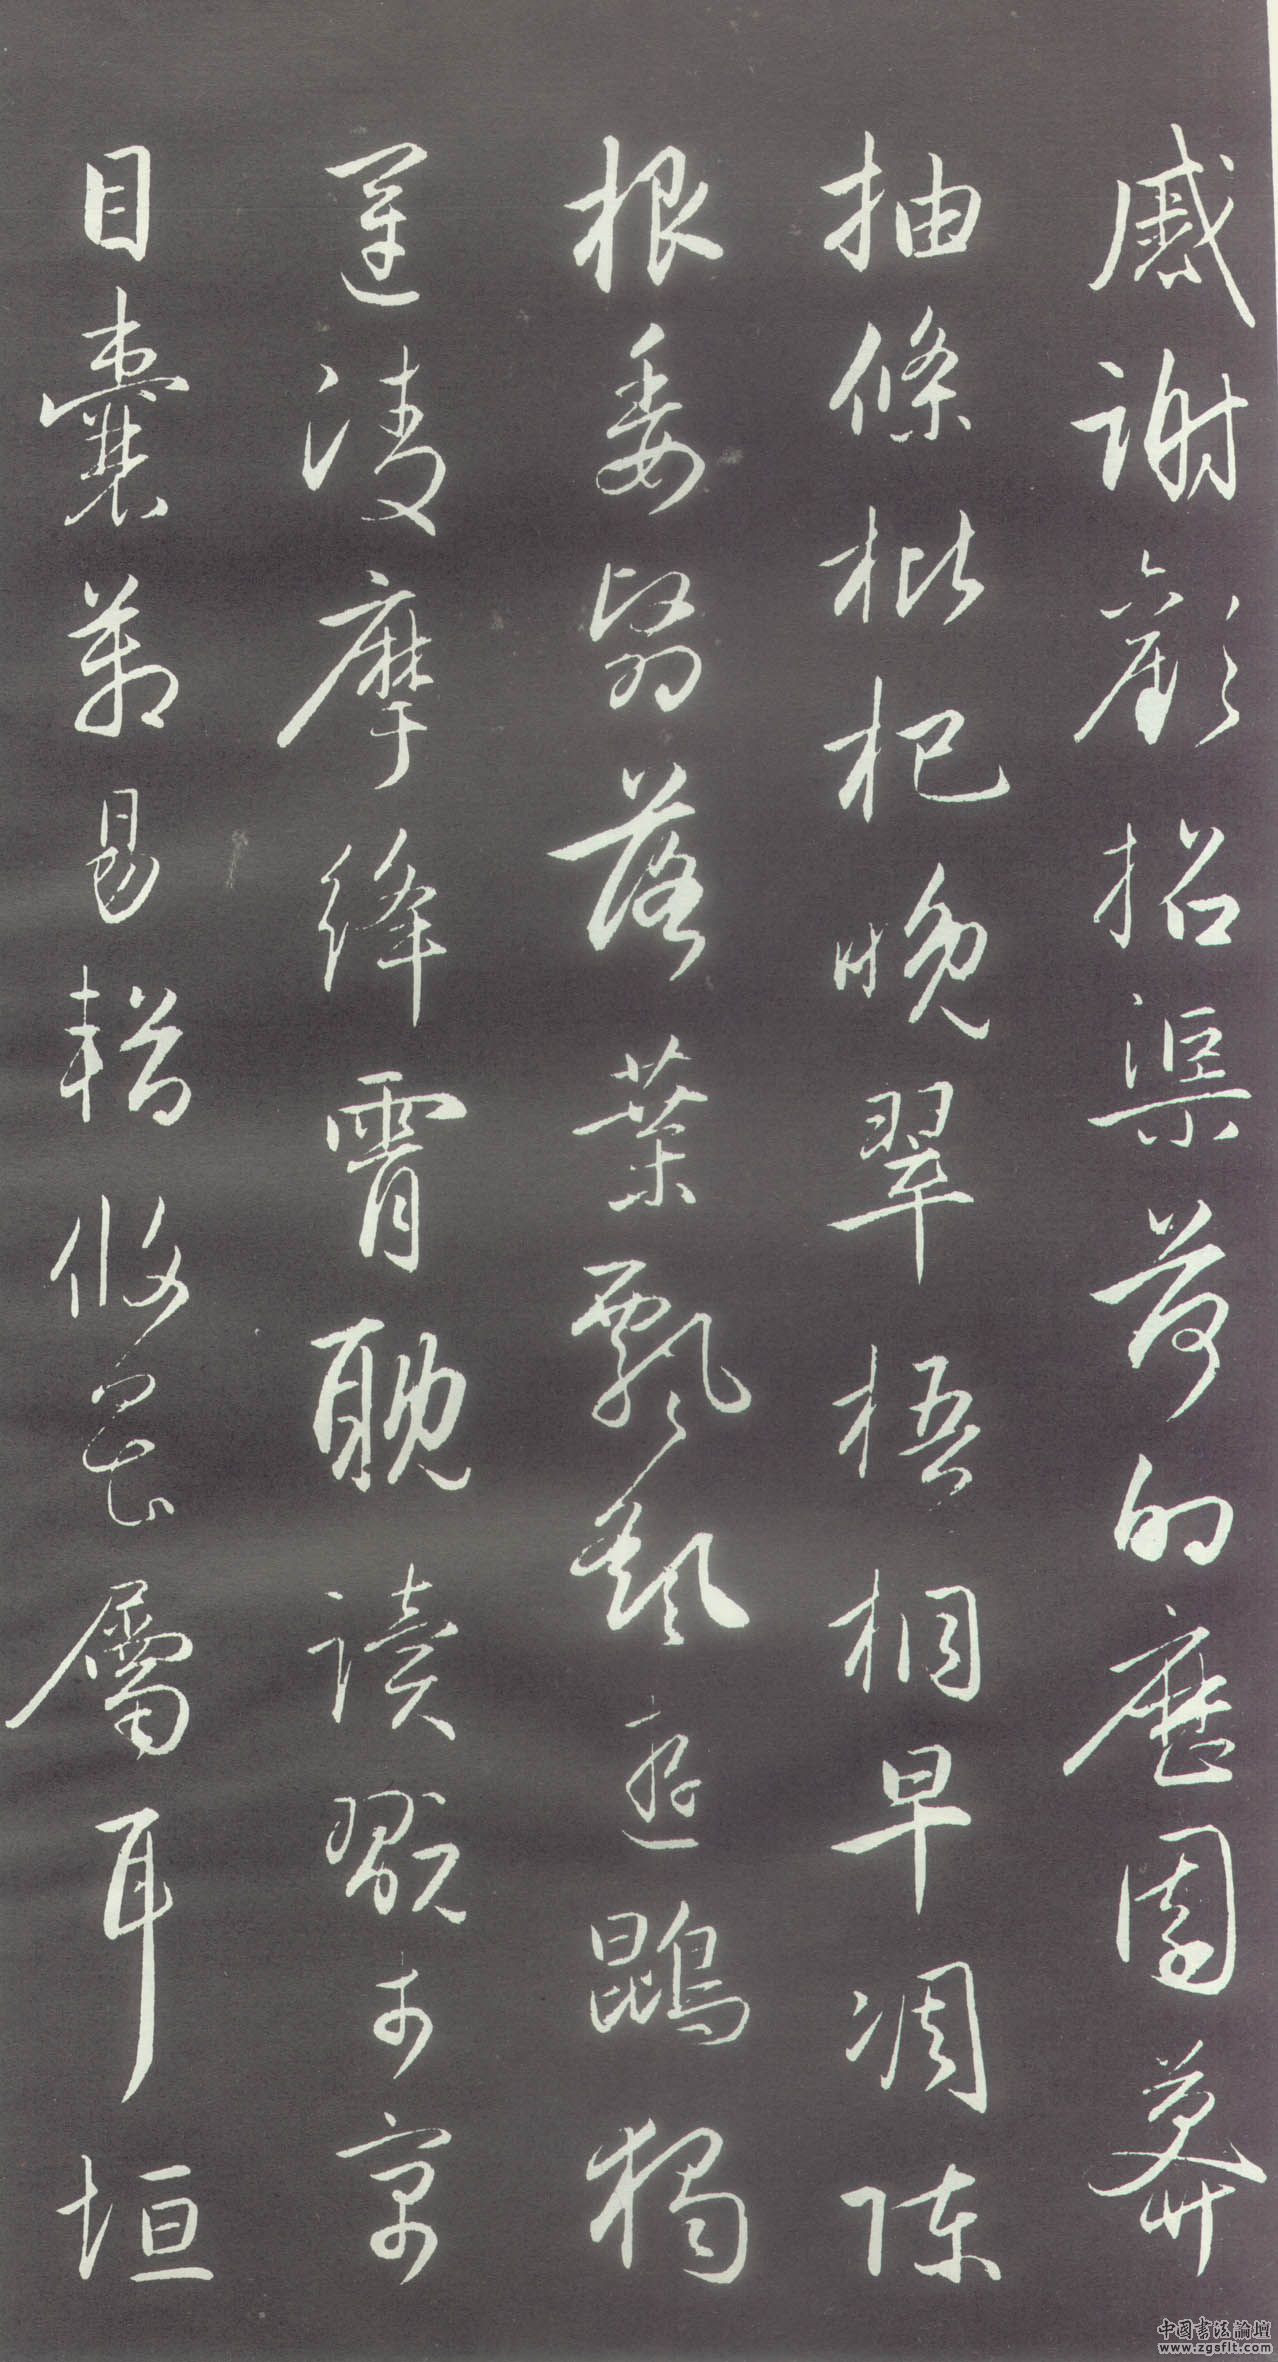 慼謝歡招渠荷的歷園莽
抽條枇杷晚翠梧桐早凋陳
根委翳落葉飄颻遊鵾獨
運淩摩絳霄耽讀翫市寓
目囊箱易輶攸畏屬耳垣
中国書法論壇
www.zgsflt.com